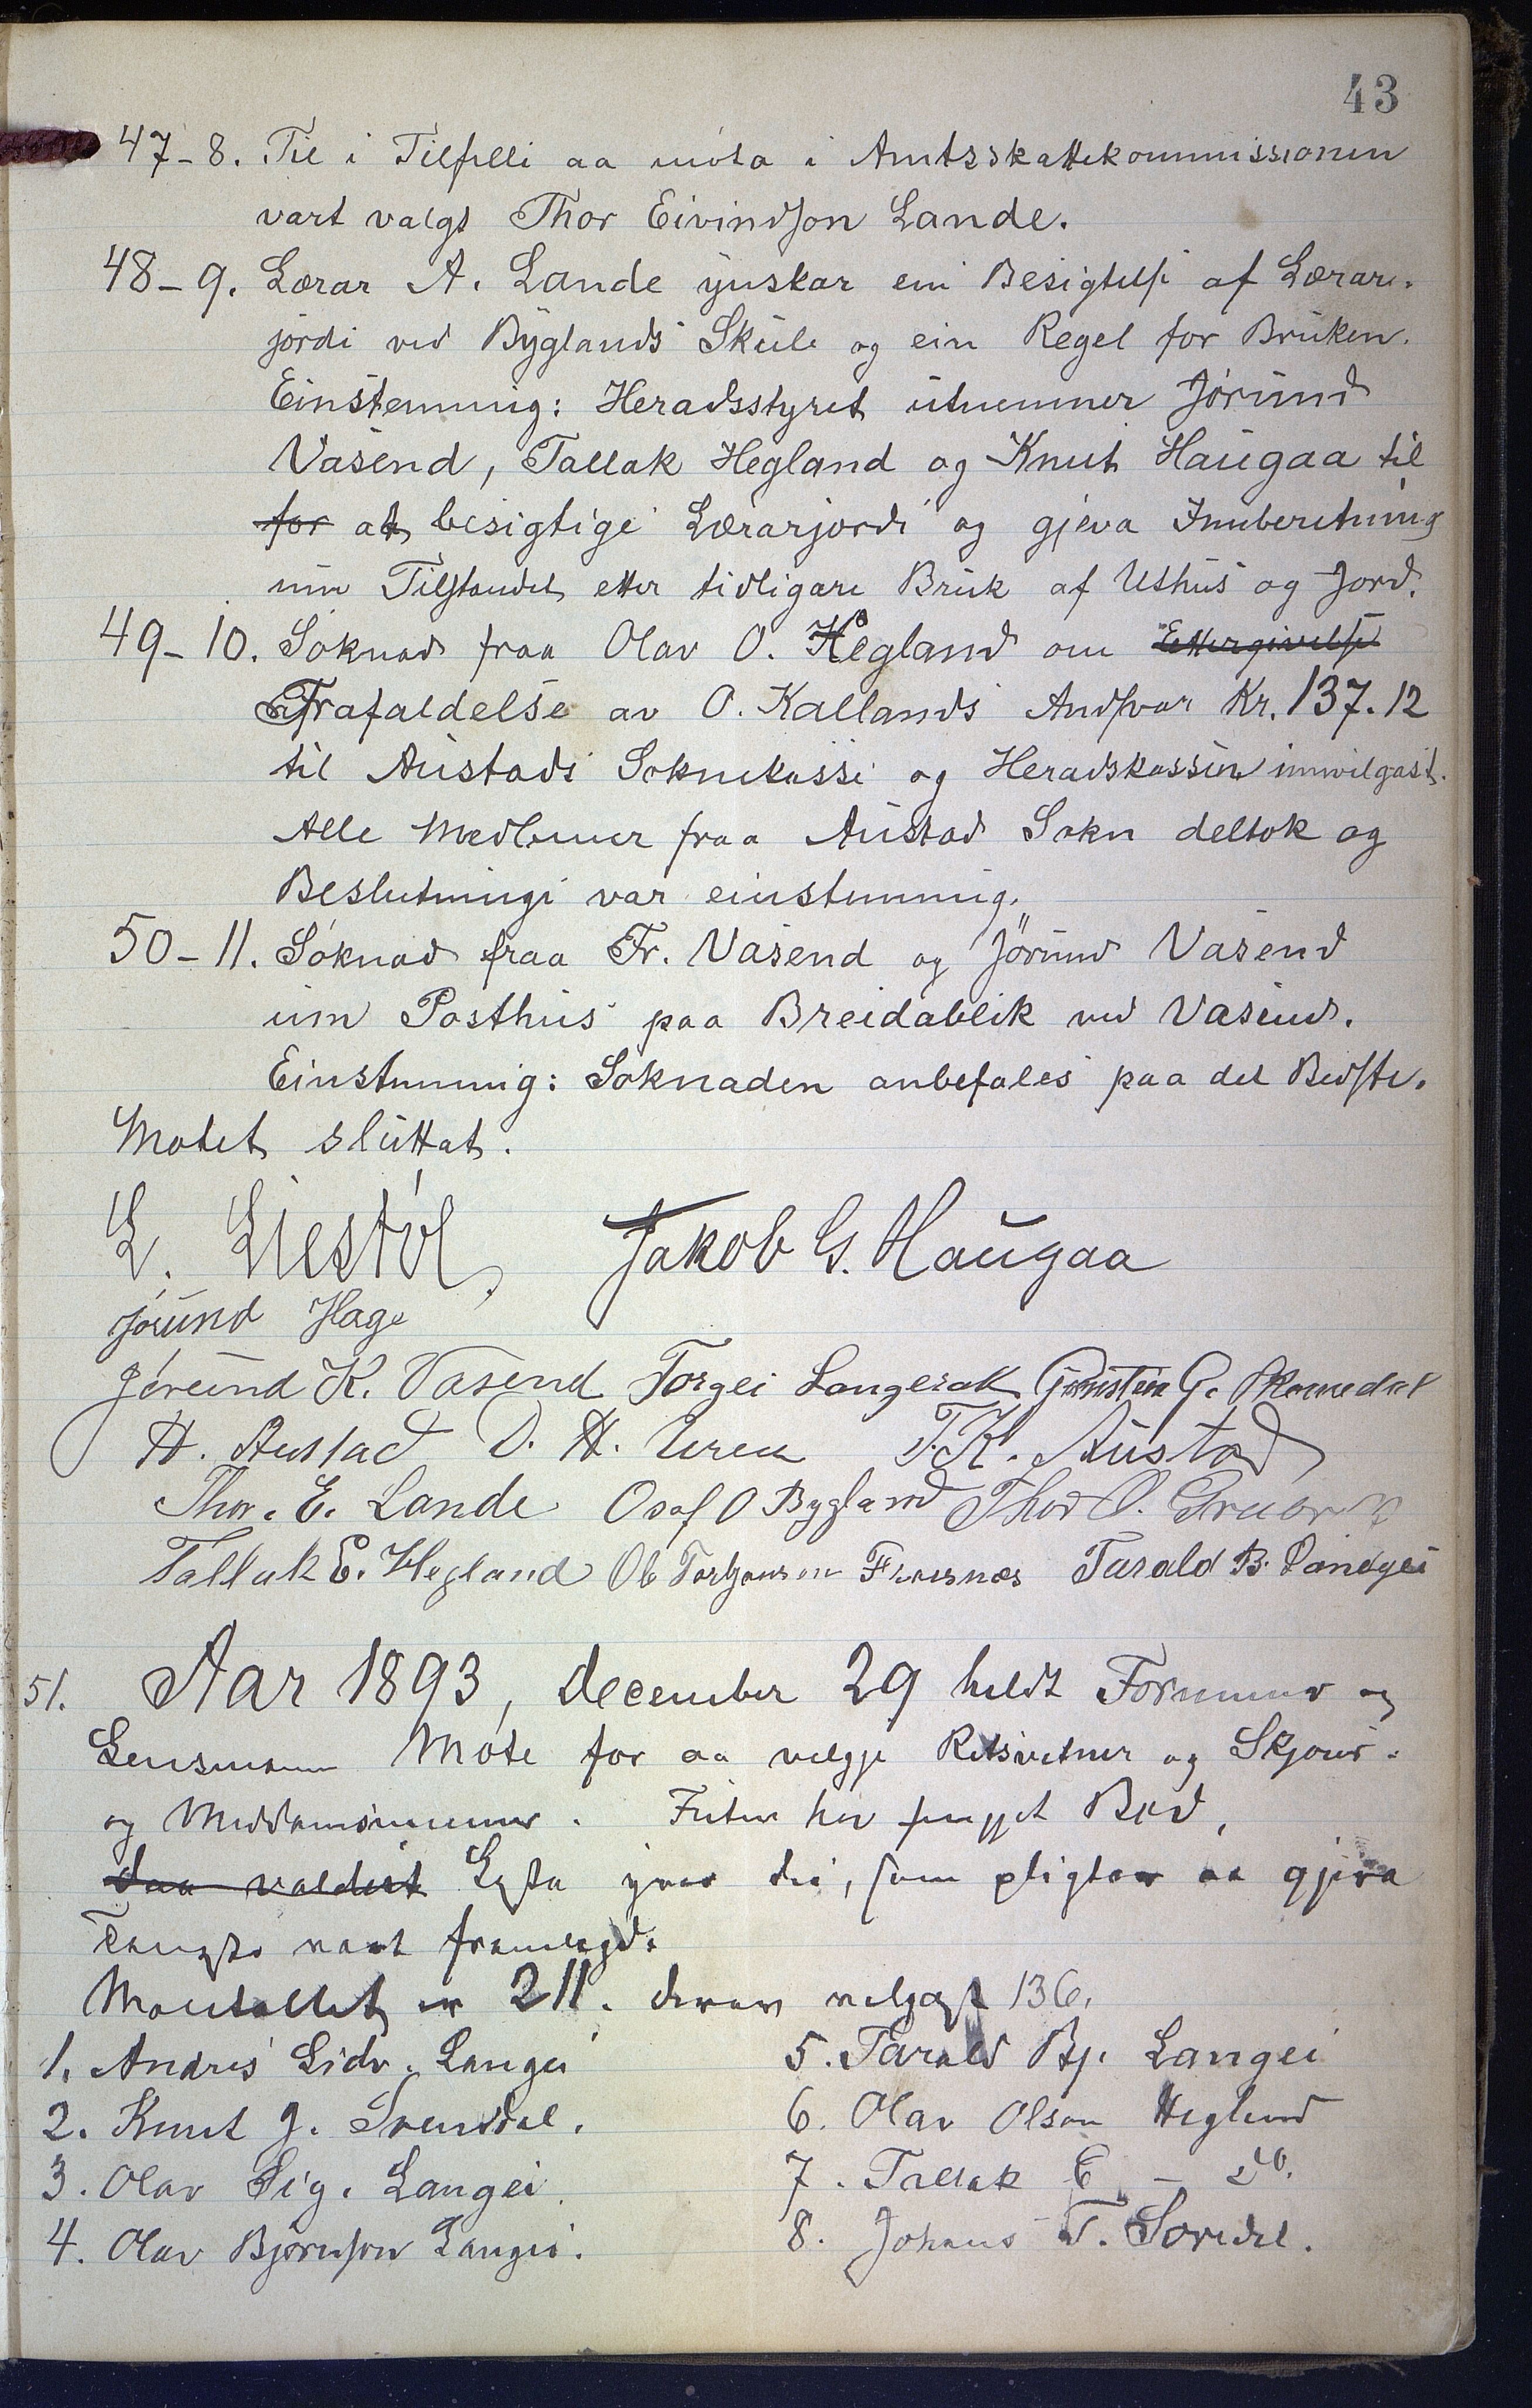 43
47-8. Til i Tilfelli aa møta i Amtsskattekommissionen
vart valgt Thor Eivindson Lande.
48-9. Lærar A. Lande ynskar ein Besigtelse af Lærar-
jordi ved Byglands Skule og ein Regel for Bruken.
Einstemmig: Heradsstyret utnemner Jórund
Vasend, Tallak Hegland og Knut Haugaa til
for at besigtige Lærarjordi og gjeva Innberetning
um Tilstandet etter tidligare Bruk af Uthus og Jord.
49-10. Søknad fraa Olav O. Hegland om Ettergivelse
Frafaldelse av O. Kallands Andsvar Kr. 137.12
til Austads Soknekassi og Heradskassen innvilgast.
Alle Medlemer fraa Austad Sokn deltok og
Beslutningi var einstemmig.
50-11. Søknad fraa Fr. Vasend og Jörund Vasend
um Posthus paa Breidablik ved Vasend.
Einstemmig: Søknaden anbefales paa det Bedste.
Møtet sluttat.
L. Liestøl, Jakob G. Haugaa
Jórund Hage
Jórund K. Vasend Torgei Langerak Gunstein G. Skomedal
H. Austad O. H. Uren T. K. Austad
Thor. E. Lande Osaf O Bygland Thor O.
Tallak E. Hegland Ole Torbjønsen Frøisnæs Tarald B. Langei
51. Aar 1893, december 29 heldt Formenner og
Lensmann Møte for aa velgje Retsvitner og Skjøns-
og Meddomsmenner. Futen hev fengjet Bod,
daa valdest Lysta yver dei, som pligtar aa gjera
Tenesta vart framlagd.
Manntallet er 211. derav velgast 136.
1. Andres Eidv. Langei
2. Knut J. Svensdal.
3. Olav Sig. Langei
4. Olav Bjørnson Langei.
5. Tarald Bj. Langei
6. Olav Olson Hegland
7. Tallak E - do.
8. Johans T.